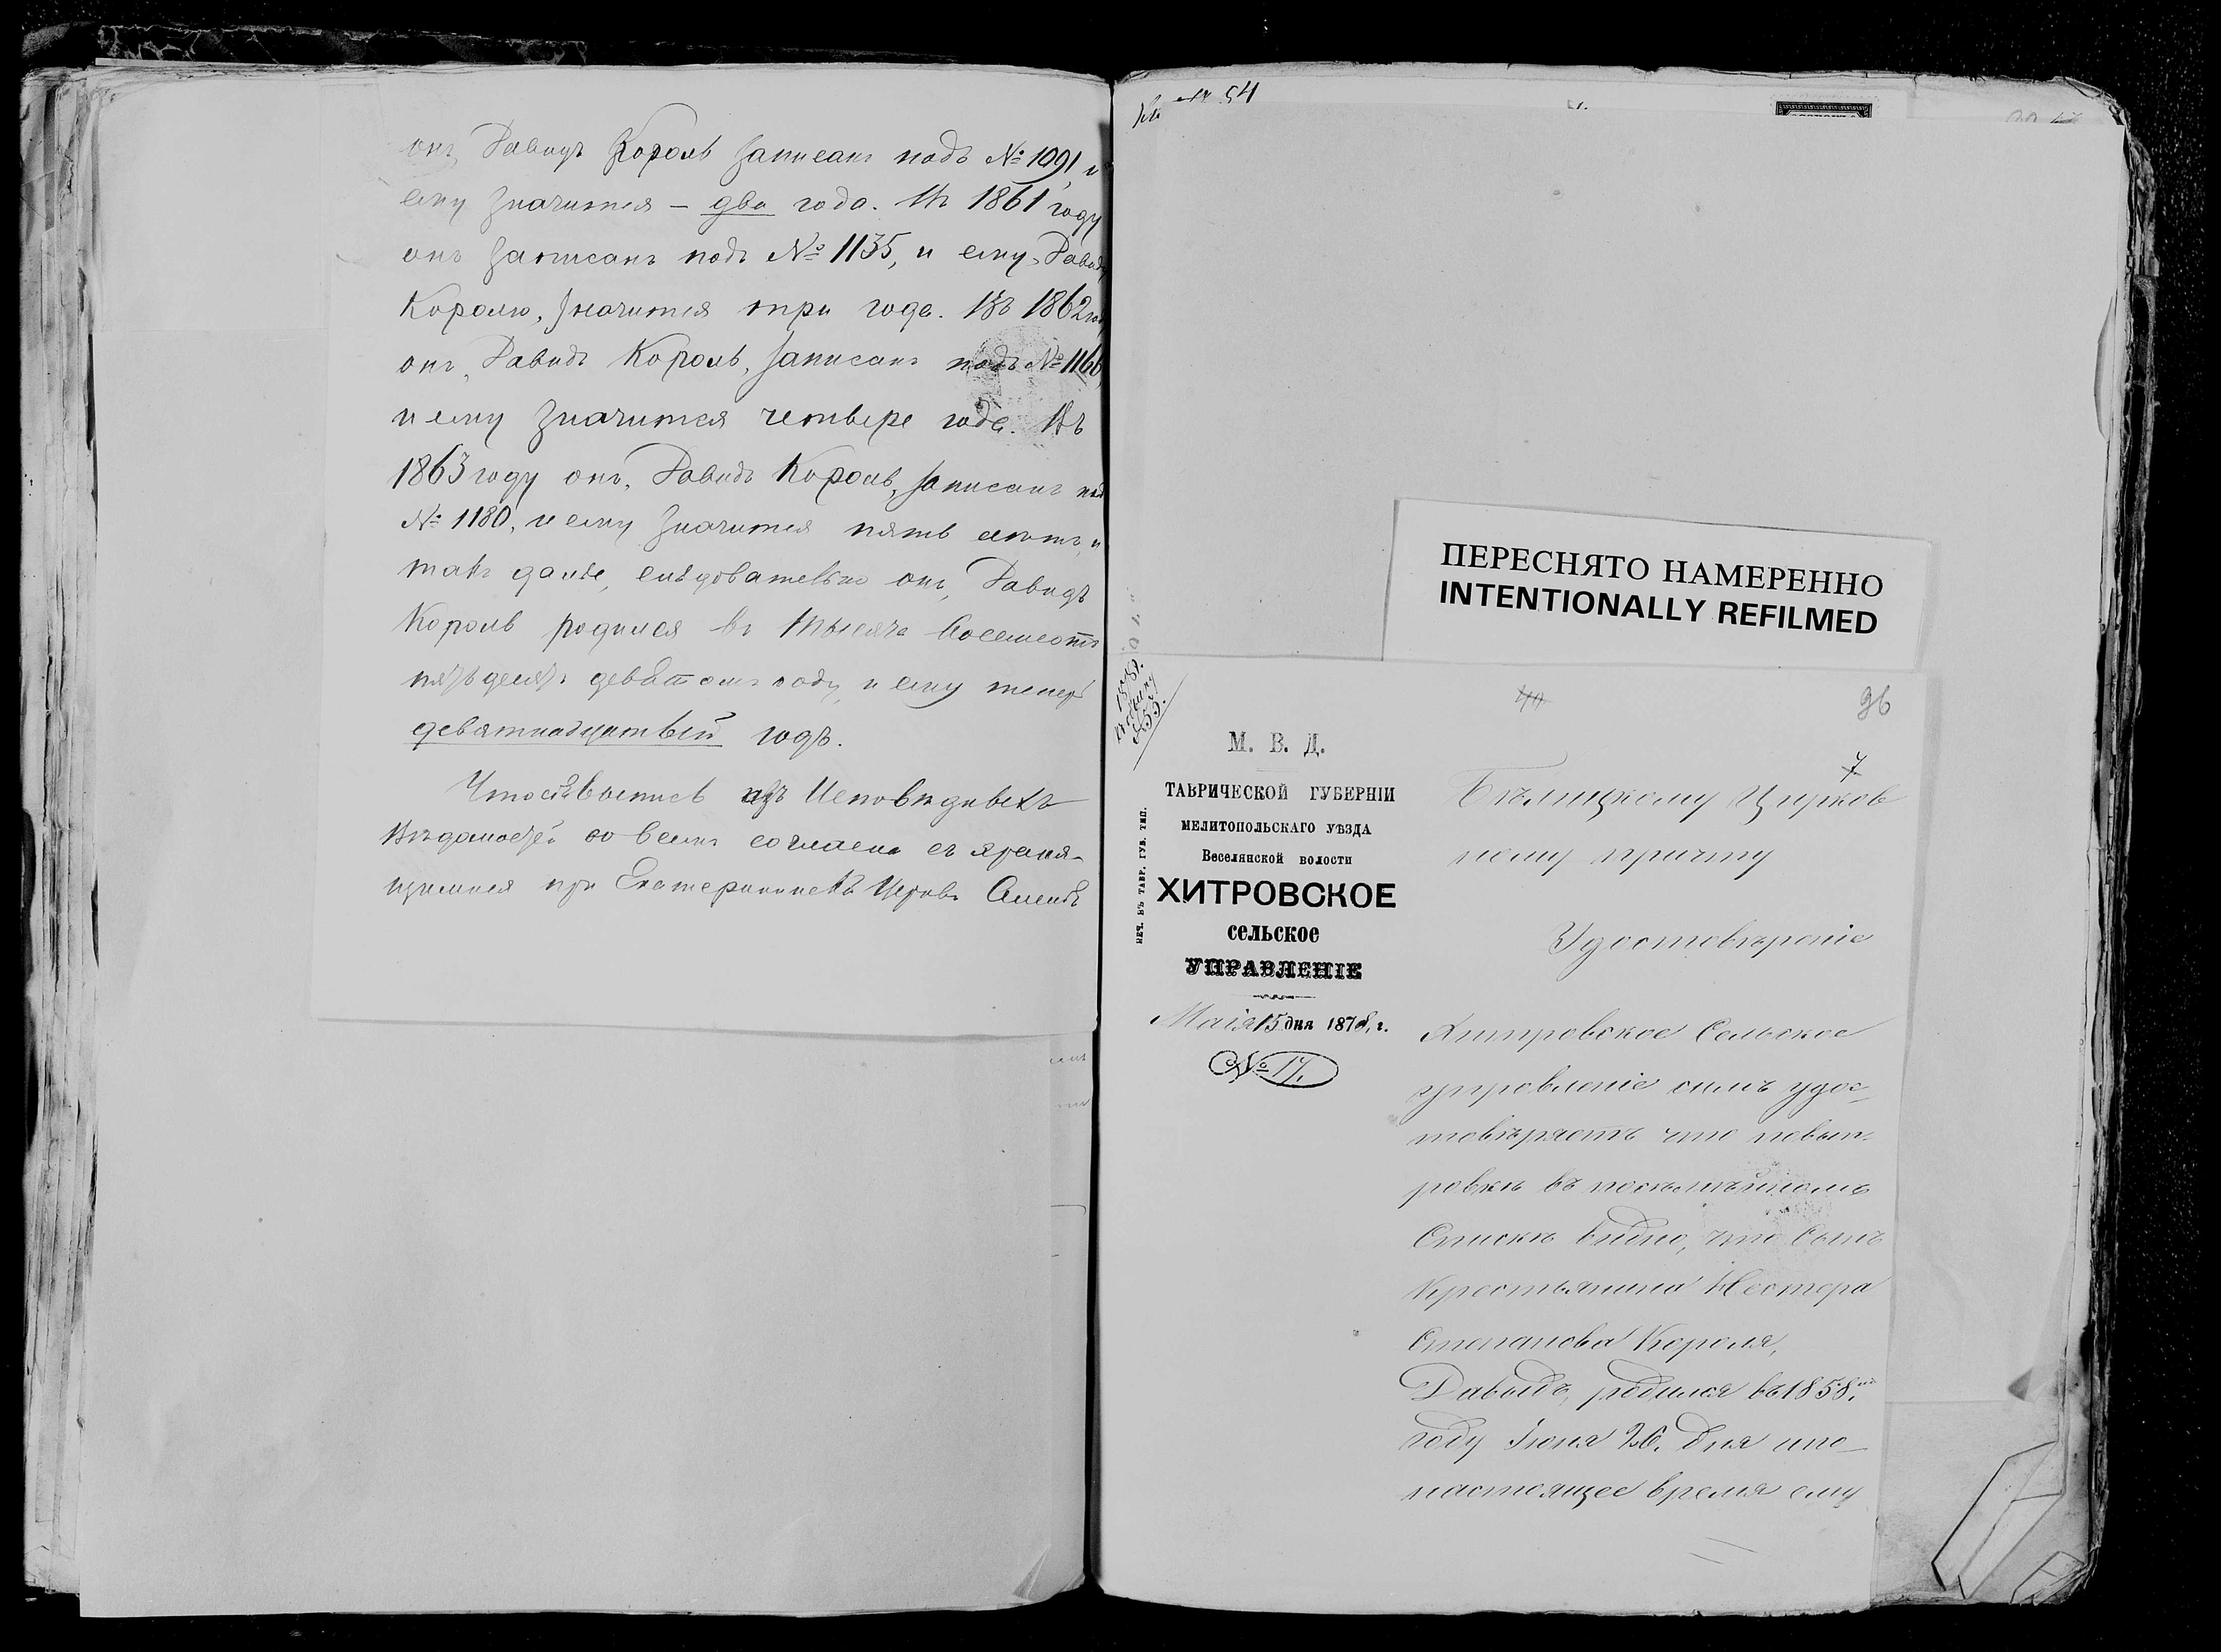 онъ Давидъ Король записанъ подъ № 1091, и
ему значится – два года. Въ 1861 году
онъ записанъ подъ № 1135, и ему, Давиду
Королю, значится три года. Въ 1862 году
онъ, Давидъ Король, записанъ подъ № 1166,
и ему значится четыре года. Въ
1863 году онъ, Давидъ Король, записанъ подъ
№ 1180, и ему значится пять лѣтъ, и
такъ далѣе, слѣдовательно онъ, Давидъ
Король родился въ тысяча восемсотъ
пятьдесятъ девятомъ году, и ему теперь
девятнадцатый годъ.
Что сія выпись изъ Исповѣдныхъ
Вѣдомостей во всемъ согласна съ храня-
щимися при Екатерининской Церкви
54
ПЕРЕСНЯТО НАМЕРЕННО
INTENTIONALLY REFILMED
96
7
М. В. Д.
ТАВРИЧЕСКОЙ ГУБЕРНІИ
МЕЛИТОПОЛЬСКАГО УѢЗДА
Веселянской волости
ХИТРОВСКОЕ
сельское
УПРАВЛЕНІЕ
Маія 15 дня 1878 г.
№ 17.
ПЕЧ. ВЪ ТАВР. ГУБ. ТИП.
Бѣлицкому Церков
ному причту
Удостовѣреніе
Хитровское Сельское
управленіе симъ удос-
товѣряетъ что повып-
ровкѣ въ посѣмѣйномъ
Спискѣ видно, что Сынъ
Крестьянина Нестора
Степанова Короля,
Давыдъ, родился въ 1858.
году Іюня 26. дня ипо-
настоящее время ему